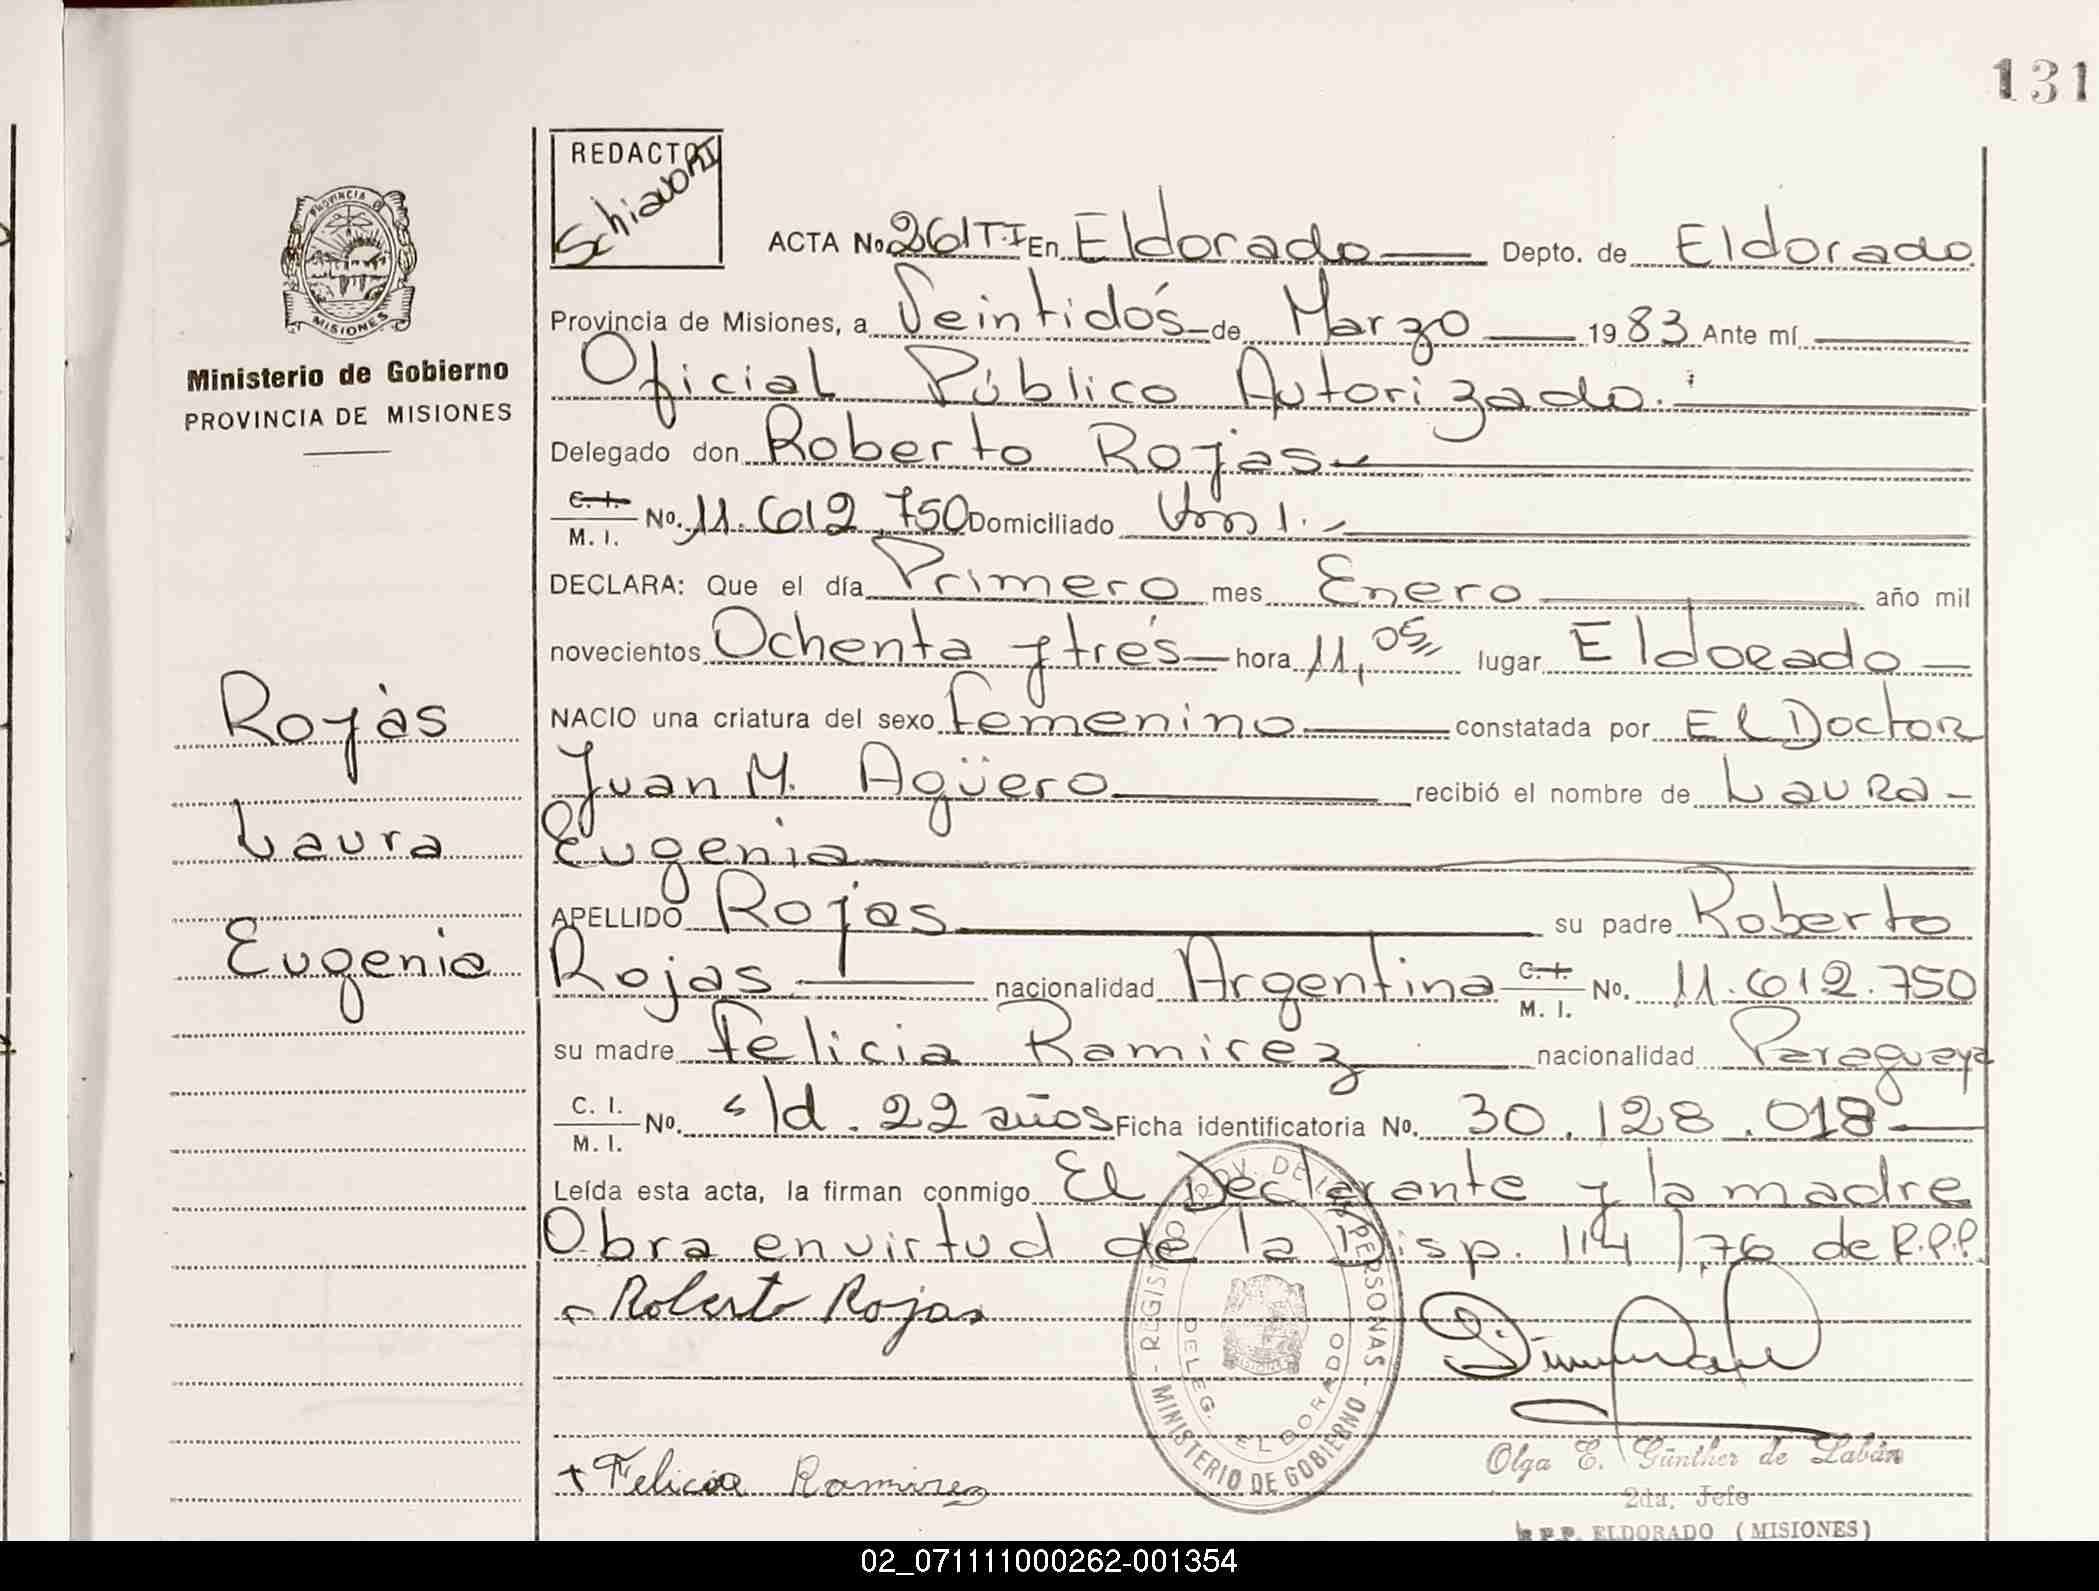 131
REDACTOR
Schiavoni
ACTA No 261 T·I En Eldorado Depto. de Eldorado
Provincia de Misiones, a Veintidós de Marzo 1983 Ante mí
Oficial Público Autorizado.
Delegado don Roberto Rojas
C. I.
M. I. No. 11.612.750 Domiciliado
DECLARA: Que el día Primero mes Enero año mil
novecientos Ochenta y trés hora 11,05 lugar Eldorado
NACIO una criatura del sexo Femenino constatada por El Doctor
Juan M. Agüero recibió el nombre de Laura
Eugenia
APELLIDO Rojas su padre Roberto
Rojas nacionalidad Argentina C. I.
M. I. No. 11.612.750
su madre Felicia Ramirez nacionalidad Paraguaya
C. I.
M. I. No. s/d. 22 años Ficha identificatoria No. 30.128.018
Leída esta acta, la firman conmigo El Declarante y la madre
Obra en virtud de la Disp. 114/76 de R.P.P.
Roberto Rojas
Felicia Ramirez
PROVINCIA D
MISIONES
Ministerio de Gobierno
PROVINCIA DE MISIONES
Rojas
Laura
Eugenia
REGISTRO PROV. DE LAS PERSONAS
MINISTERIO DE GOBIERNO
DELEG. ELDORADO
Olga E. Günther de Labán
2da. Jefe
R.P.P. ELDORADO (MISIONES)
02_071111000262-001354